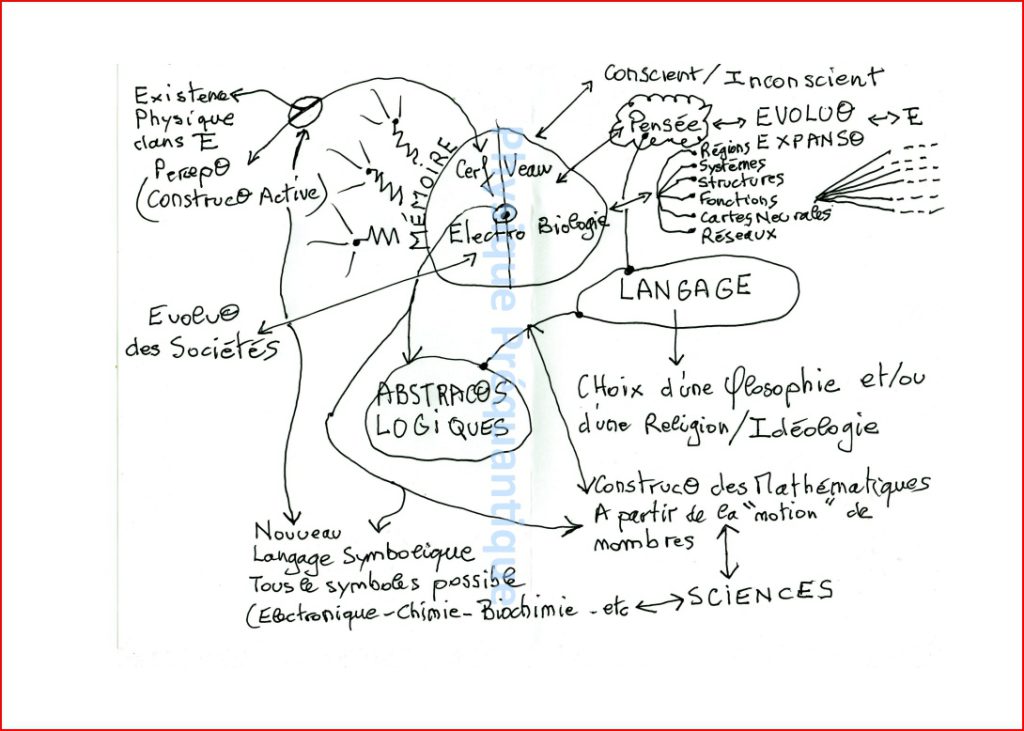 Conscient / Inconscient
Existence
Physique
dans E
Percepθ
(Construcθ Active)
MÉMOIRE
Cer Veau
Electro Biologie
Pensée
EVOLUθ
E
EXPANSθ
Régions
Systèmes
Structures
Fonctions
Cartes Neurales
Réseaux
LANGAGE
Evoluθ
des Sociétés
ABSTRACθS
LOGiQUES
CHoix d'une φlosophie et/ou
d'une Religion/Idéologie
Construcθ des Mathématiques
A partir de la "motion" de
nombres
Nouveau
Langage Symbolique
Tous le symboles possible
(Electronique - Chimie - Biochimie - etc
SCiENCES
Physique Préquantique